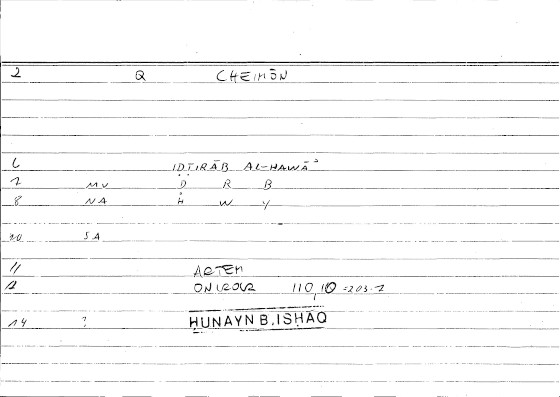 2 Q CHEIMŌN
6 IḌṬIRĀB AL-HAWĀʾ
7 MU Ḍ R B
8 NA H W Y
10 SA
11 ARTEM
12 ONIROCR 110,10 =203-2
14 ? ḤUNAYN B. ISḤĀQ